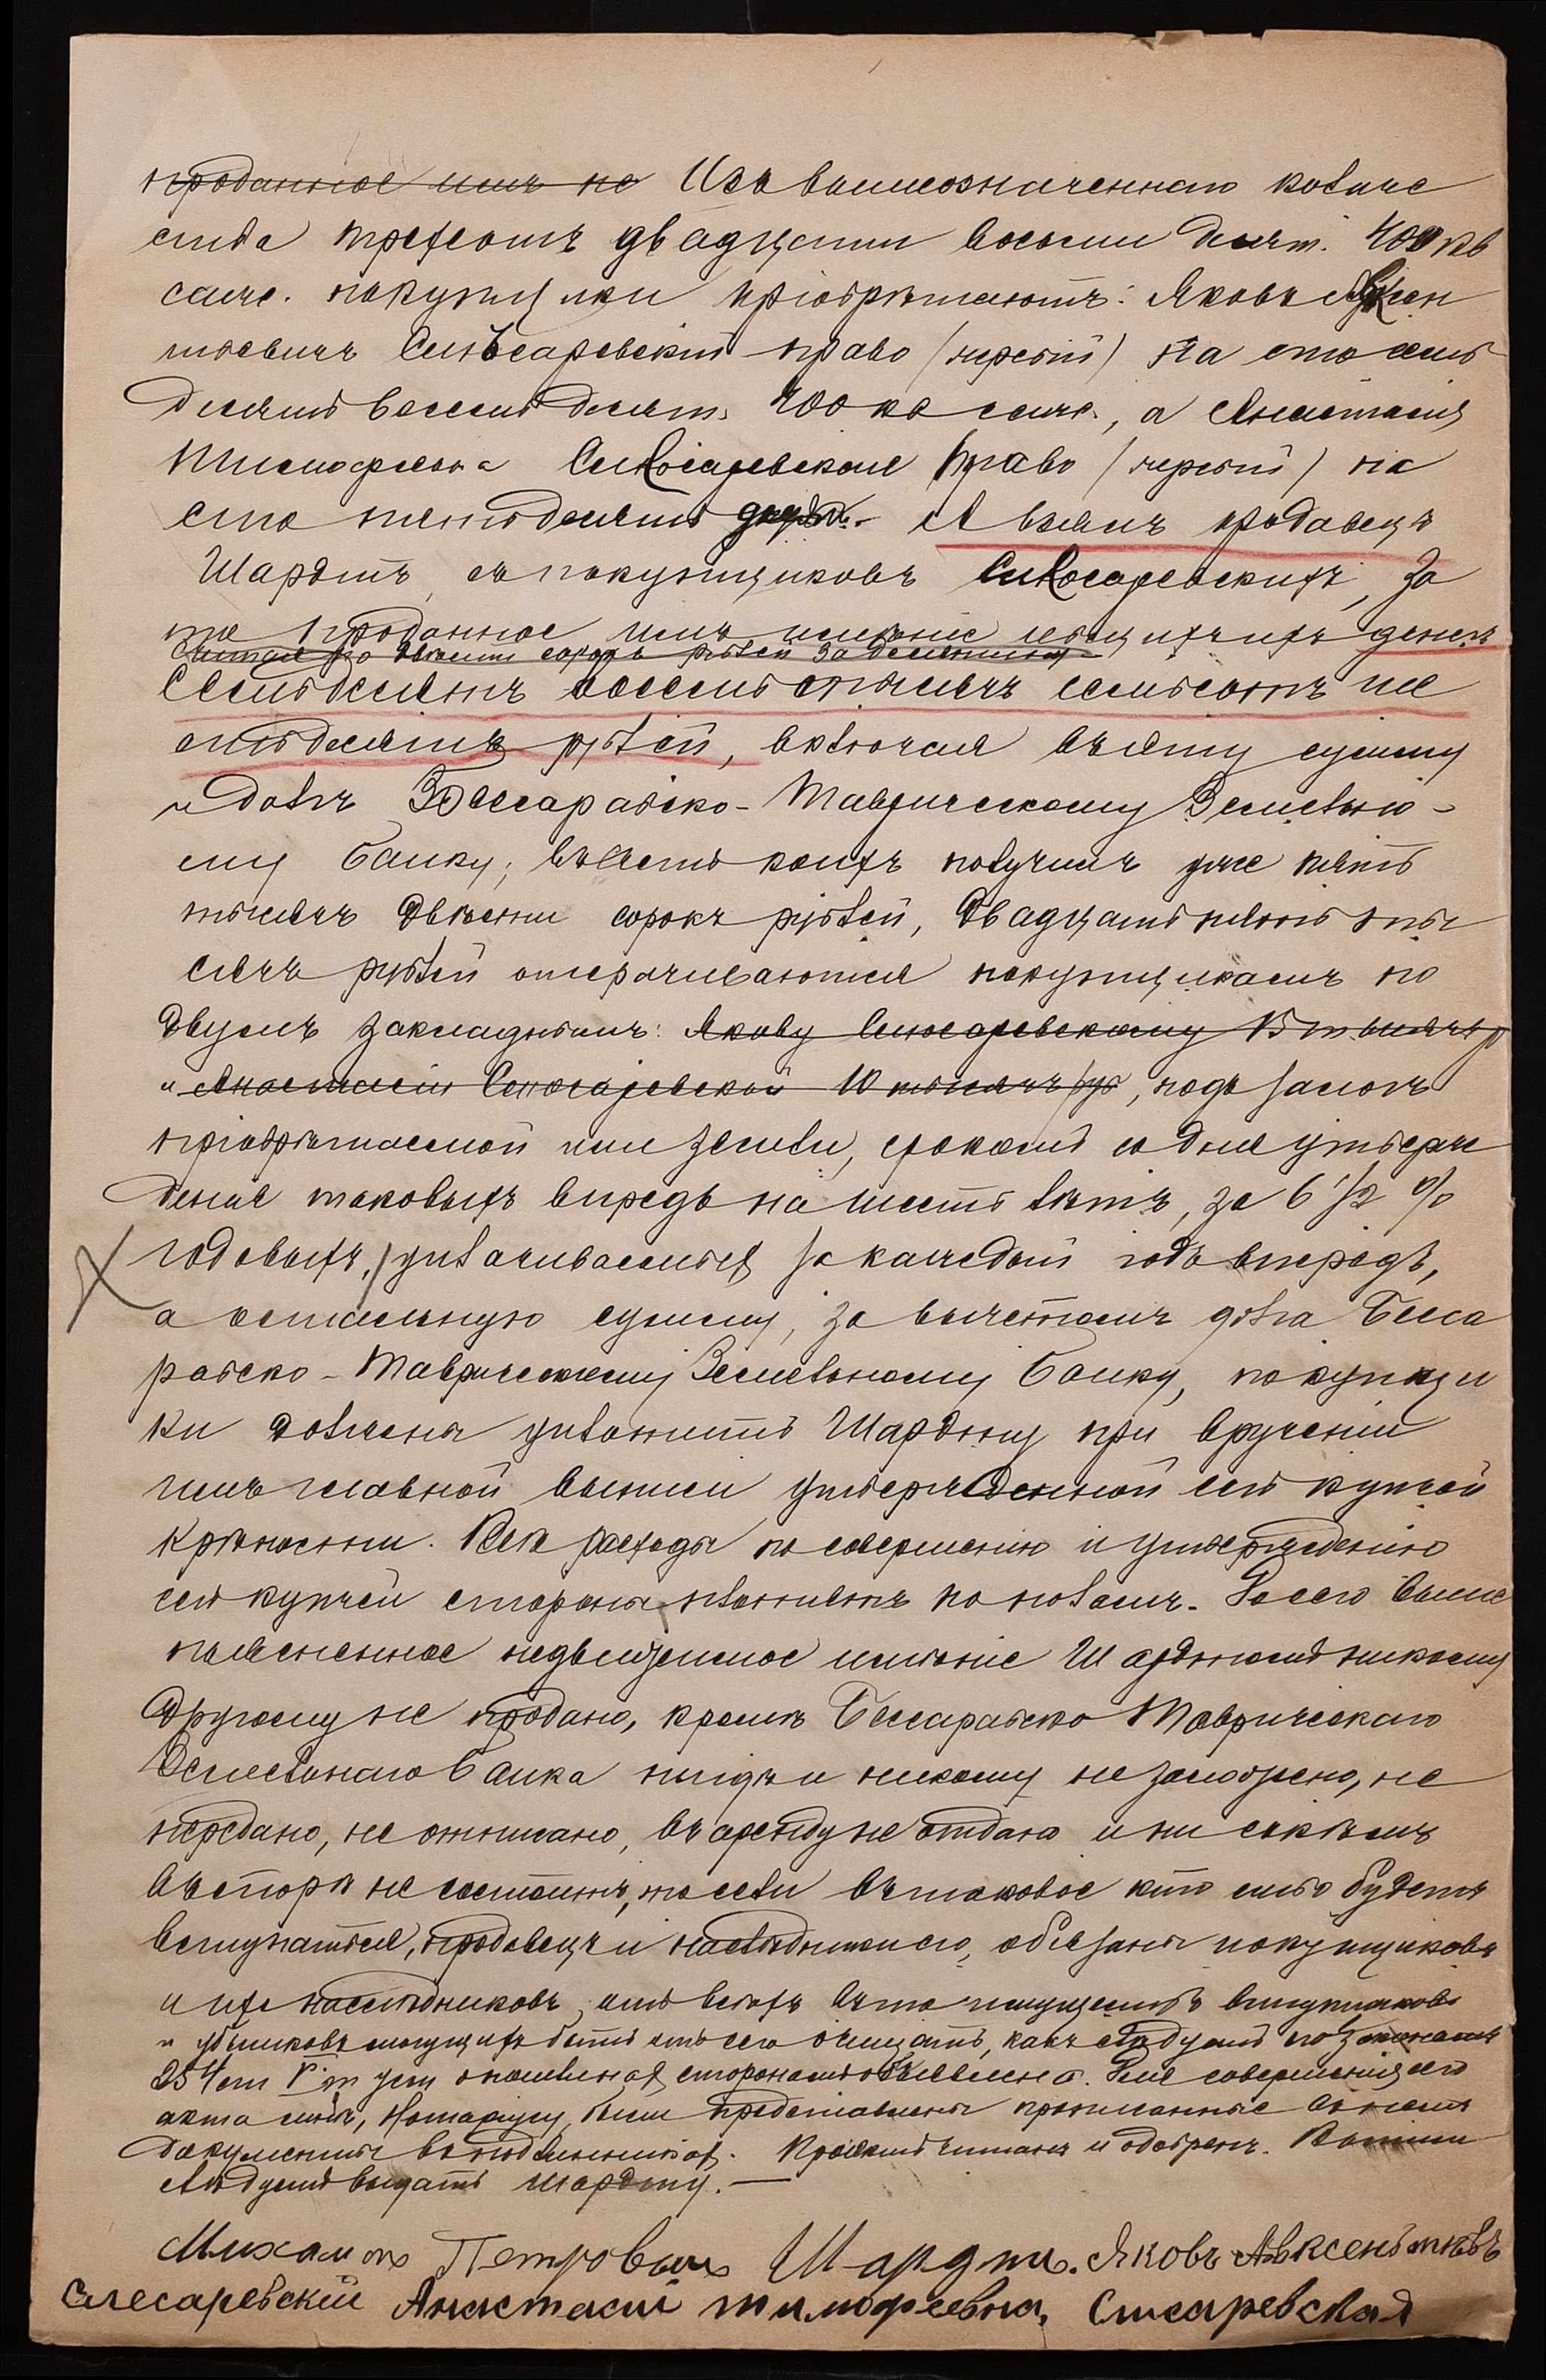 проданное имъ не Изъ вышеозначеннаго количе
ства трехсотъ двадцати восьми десят. 400 кв
саже. покупщики пріобрѣтаютъ: Яковъ Авксен
тіевичъ Слюсаревскій право (чертій) На сто семь
десятъ восемь десят. 400 кв саже., а Анастасія
Тимофеевна Слюсаревская право (чертій) на
сто пятьдесятъ А взялъ продавецъ
Шардтъ съ покупщиковъ Слюсаревскихъ, За
то проданное имъ имѣніе изъ ихъ денегъ
считая по двѣсти сорокъ рублей за десятину
Семьдесятъ восемь тысячъ семьсотъ ше
стьдесятъ рублей, включая въ эту сумму
и долгъ Бессарабско-Таврическому Земельно-
му Банку; въ счетъ коихъ получилъ уже пять
тысячъ двѣсти сорокъ рублей, двадцать пять ты
сячъ рублей отсрачиваются покупщикамъ по
двумъ закладнымъ: Якову Слюсаревскому 15 тысячъ р
и Анастасіи Слюсаревской 10 тысячъ ру, подъ залогъ
пріобрѣтаемой ими земли, срокомъ со дня утверж
денія таковыхъ впредь на шесть лѣтъ, за 6 1/2 %
годовыхъ, уплачиваемыхъ за каждый годъ впередъ,
а остальную сумму, за вычетомъ долга Бесса
рабско-Таврическому Земельному Банку, покупщи
ки должны уплатить Шардту при врученіи
имъ главной выписи утвержденной сей купчей
крѣпости. Всѣ расходы по совершенію и утвержденію
сей купчей стороны платятъ по поламъ. До сего выше
поясненное недвижимое имѣніе Шардтомъ никому
другому не продано, кромѣ Бессарабско Таврическаго
Земельнаго Банка нигдѣ и никому не заложено, не
передано, не отписано, въ аренду не отдано и ни съ кѣмъ
въ спорѣ не состоитъ, то если въ таковое кто либо будетъ
вступаться, продавецъ и наслѣдники его, обязаны покупщиковъ
и ихъ наслѣдниковъ, отъ всѣхъ въ то имущество вступщиковъ
и убытковъ могущихъ быть отъ сего очищать, какъ слѣдуетъ по законамъ
254 ст V т уст о пошлинахъ сторонамъ объявлена. Для совершенія сего
акта мнѣ, Нотаріусу, были представлены прописанные въ немъ
документы въ подлинникахъ. Проектъ читанъ и одобренъ. Выпись
слѣдуетъ выдать Шардту. —
Михаилъ Петровичъ Шардтъ. Яковъ Авксентьевъ
Слесаревскій Анастасія тимофеевна, Слисаревская